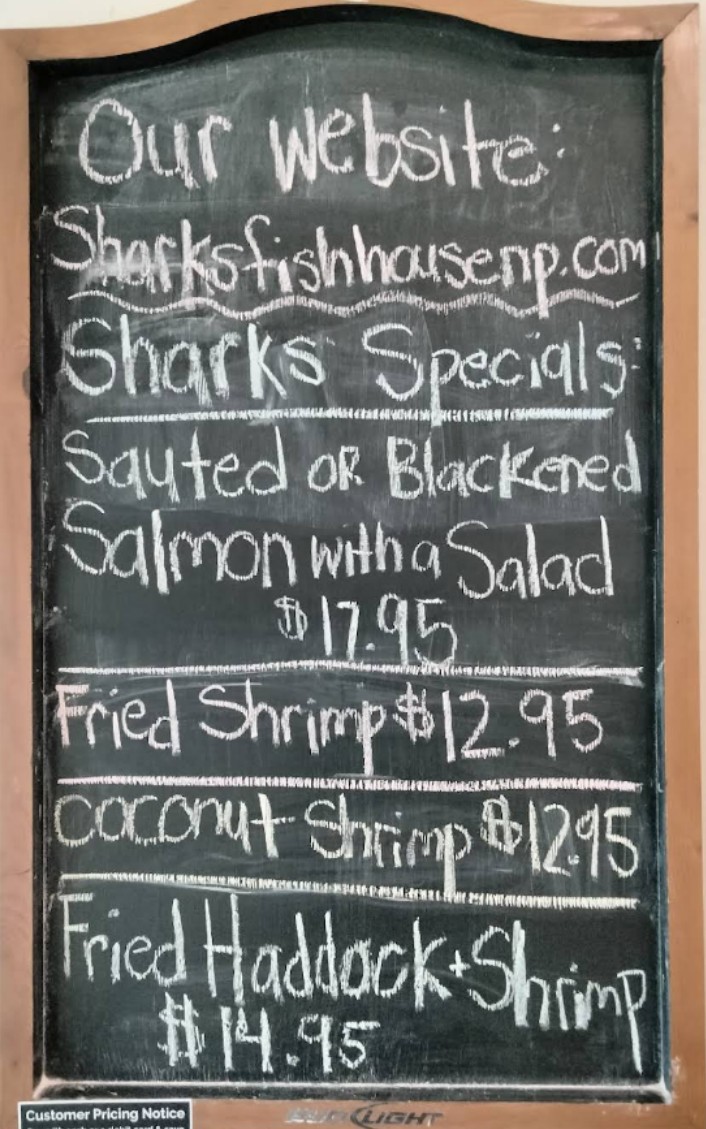 Our website:
Sharksfishhousenp.com
Sharks Specials:
Sauted OR Blackened
Salmon with a Salad
$17.95
Fried Shrimp $12.95
coconut Shrimp $12.95
Fried Haddock + Shrimp
$14.95
Customer Pricing Notice
BUD LIGHT